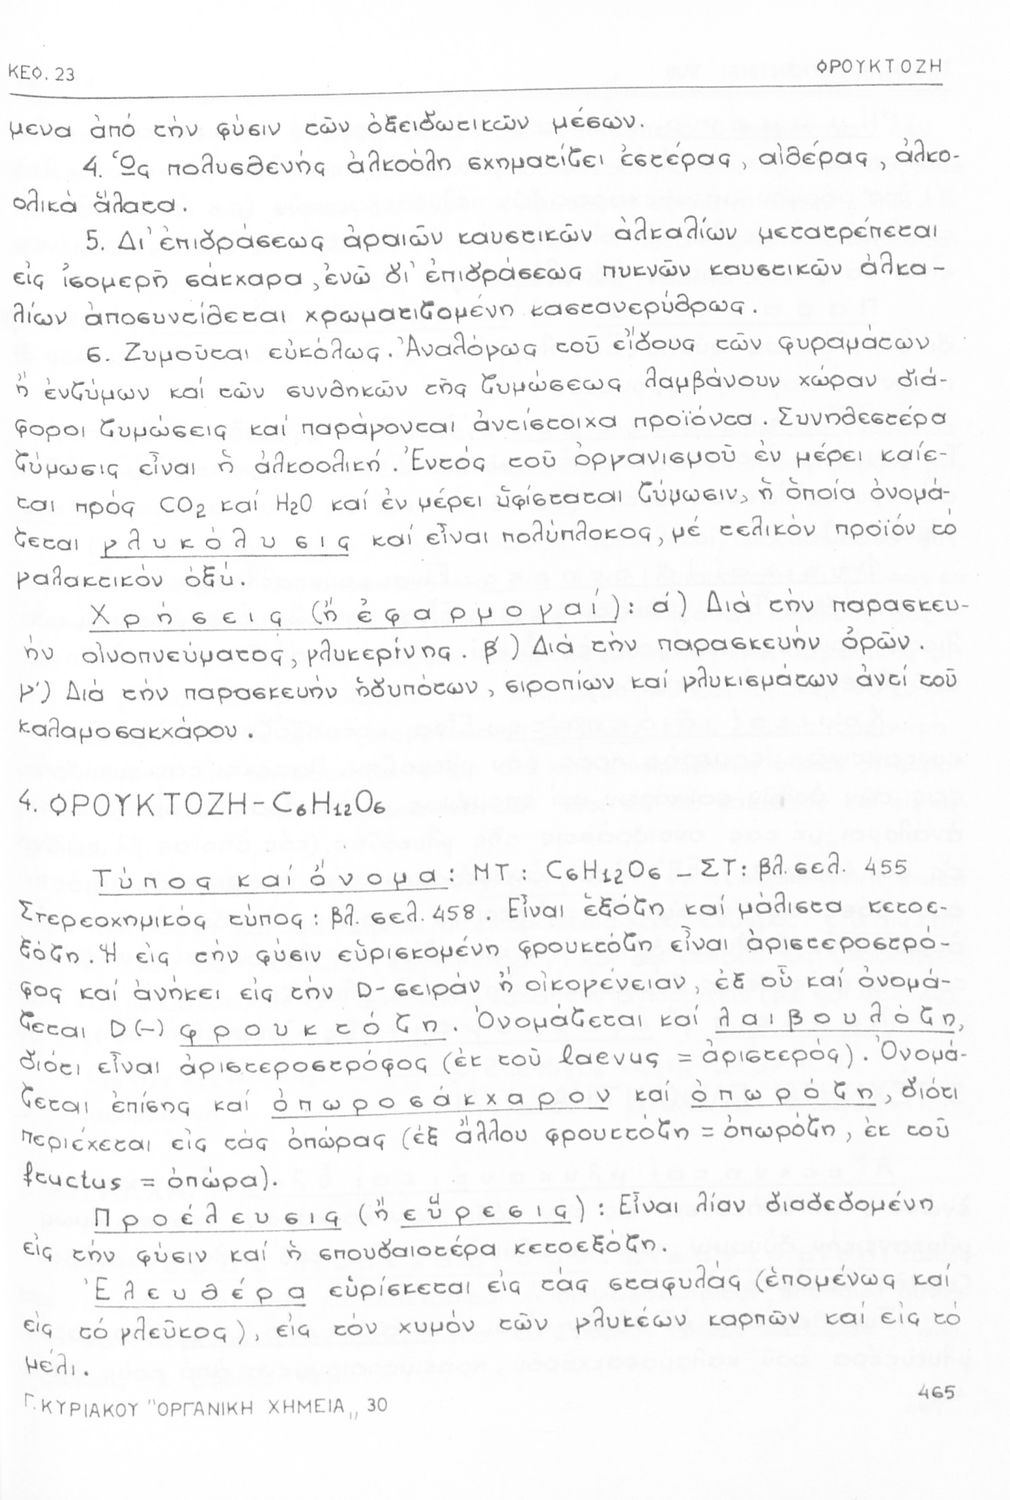 ΚΕΦ. 23 ΦΡΟΥΚΤΟΖΗ
μενα ἀπό τήν φύσιν τῶν ὀξειδωτικῶν μέσων.
4. Ὡς πολυσθενής ἀλκοόλη σχηματίζει ἐστέρας, αἰθέρας, ἀλκο-
ολικά ἅλατα.
5. Δι' ἐπιδράσεως ἀραιῶν καυστικῶν ἀλκαλίων μετατρέπεται
εἰς ἰσομερῆ σάκχαρα, ἐνῶ δι' ἐπιδράσεως πυκνῶν καυστικῶν ἀλκα-
λίων ἀποσυντίθεται χρωματιζομένη καστανερύθρως.
6. Ζυμοῦται εὐκόλως. Ἀναλόγως τοῦ εἴδους τῶν φυραμάτων
ἤ ἐνζύμων καί τῶν συνθηκῶν τῆς ζυμώσεως λαμβάνουν χώραν διά-
φοροι ζυμώσεις καί παράγονται ἀντίστοιχα προϊόντα. Συνηθεστέρα
ζύμωσις εἶναι ἡ ἀλκοολική. Ἐντός τοῦ ὀργανισμοῦ ἐν μέρει καίε-
ται πρός CO₂ καί H₂O καί ἐν μέρει ὑφίσταται ζύμωσιν, ἡ ὁποία ὀνομά-
ζεται γλυκόλυσις καί εἶναι πολύπλοκος, μέ τελικόν προϊόν τό
γαλακτικόν ὀξύ.
Χρήσεις (ἤ ἐφαρμογαί): α') Διά τήν παρασκευ-
ήν οἰνοπνεύματος, γλυκερίνης. β') Διά τήν παρασκευήν ὀρῶν.
γ') Διά τήν παρασκευήν ἡδυπότων, σιροπίων καί γλυκισμάτων ἀντί τοῦ
καλαμοσακχάρου.
4. ΦΡΟΥΚΤΟΖΗ - C₆H₁₂O₆
Τύπος καί ὄνομα: ΜΤ: C₆H₁₂O₆ - ΣΤ: βλ. σελ. 455
Στερεοχημικός τύπος: βλ. σελ. 458. Εἶναι ἑξόζη καί μάλιστα κετοε-
ξόζη. Ἡ εἰς τήν φύσιν εὑρισκομένη φρουκτόζη εἶναι ἀριστεροστρό-
φος καί ἀνήκει εἰς τήν D-σειράν ἤ οἰκογένειαν, ἐξ οὗ καί ὀνομά-
ζεται D(-) φρουκτόζη. Ὀνομάζεται καί λαιβουλόζη,
διότι εἶναι ἀριστεροστρόφος (ἐκ τοῦ laevus = ἀριστερός). Ὀνομά-
ζεται ἐπίσης καί ὀπωροσάκχαρον καί ὀπωρόζη, διότι
περιέχεται εἰς τάς ὀπώρας (ἐξ ἄλλου φρουκτόζη = ὀπωρόζη, ἐκ τοῦ
fructus = ὀπώρα).
Προέλευσις (ἤ εὕρεσις): Εἶναι λίαν διαδεδομένη
εἰς τήν φύσιν καί ἡ σπουδαιοτέρα κετοεξόζη.
Ἐλευθέρα εὑρίσκεται εἰς τάς σταφυλάς (ἑπομένως καί
εἰς τό γλεῦκος), εἰς τόν χυμόν τῶν γλυκέων καρπῶν καί εἰς τό
μέλι.
Γ. ΚΥΡΙΑΚΟΥ "ΟΡΓΑΝΙΚΗ ΧΗΜΕΙΑ„ 30 465